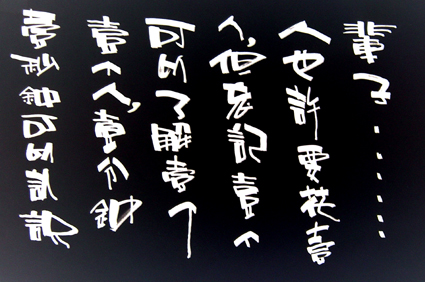 壹秒鈡可以認識
壹个人,壹分鈡
可以了解壹个
人,但忘記壹个
人也許要花壹
輩子......